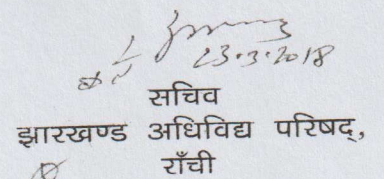 23.3.2018
सचिव
झारखण्ड अधिविद्य परिषद्,
राँची